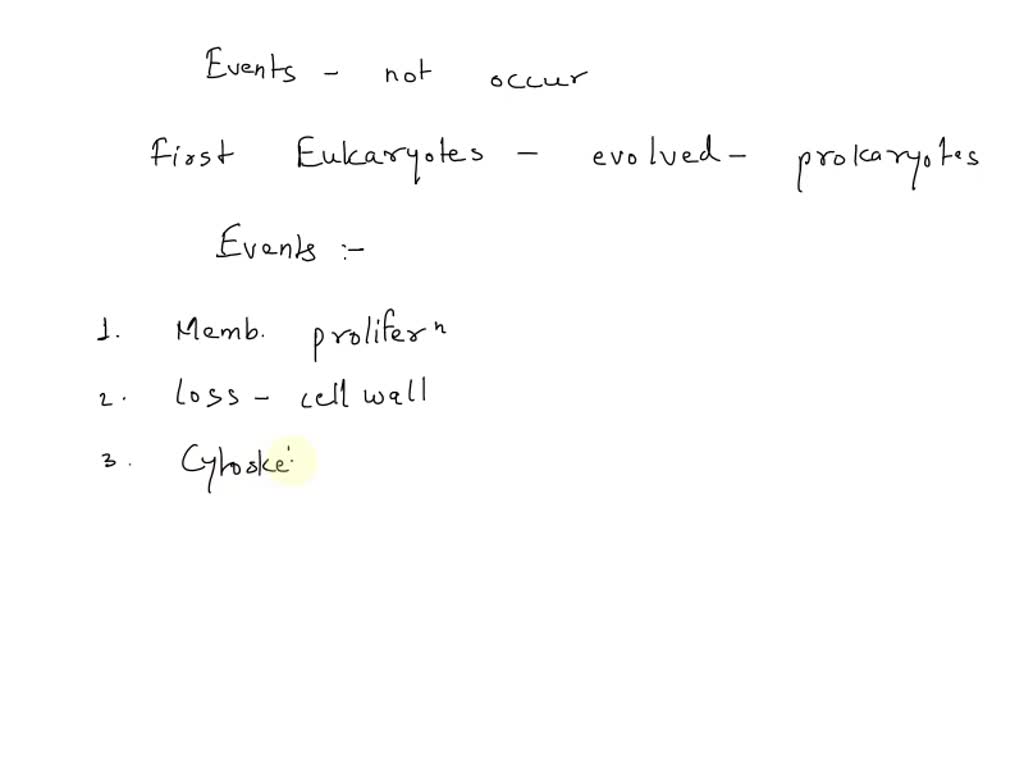 Events - not occur
First Eukaryotes - evolved - prokaryotes
Events :-
1. Memb. prolifer n
2. Loss - cell wall
3. Cytoske